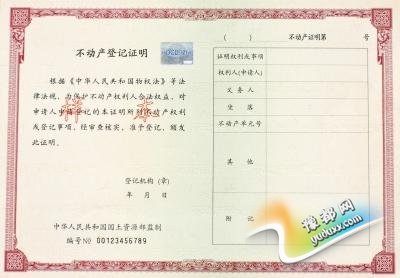 不动产登记证明
根据《中华人民共和国物权法》等法
律法规，为保护不动产权利人合法权益，对
申请人申请登记的本证明所列不动产权利
或登记事项，经审查核实，准予登记，颁发
此证明。
样本
登记机构（章）
年 月 日
中华人民共和国国土资源部监制
编号 № 00123456789
（ ） 不动产证明第 号
证明权利或事项
权利人(申请人)
义务人
坐落
不动产单元号
其他
附记
豫都网
yuduxx.com